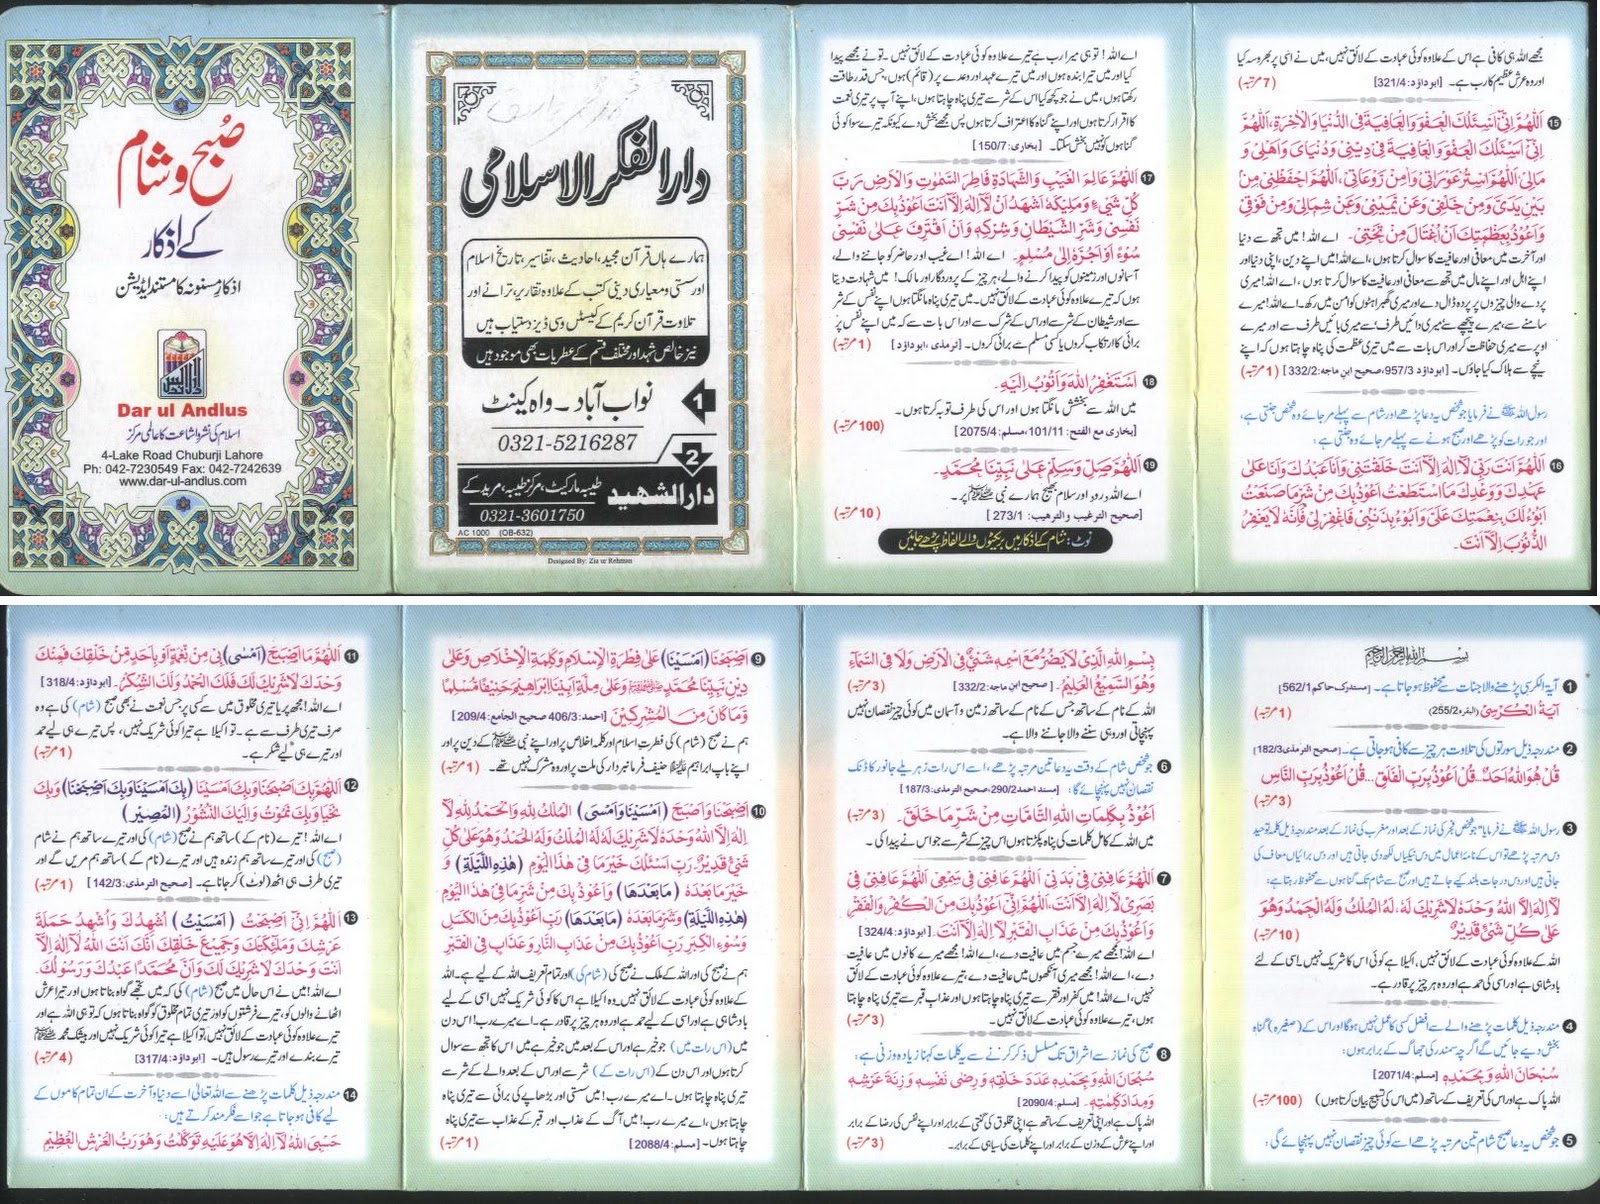 صُبح و شام
کے اذکار
اذکارِ مسنونہ کا مستند ایڈیشن
Dar ul Andlus
اسلام کی نشر و اشاعت کا عالمی مرکز
4-Lake Road Chuburji Lahore
Ph: 042-7230549 Fax: 042-7242639
www.dar-ul-andlus.com
دارالفکر الاسلامی
ہمارے ہاں قرآن مجید، احادیث، تفاسیر، تاریخ اسلام
اور سستی و معیاری دینی کتب کے علاوہ تقاریر، ترانے اور
تلاوت قرآن کریم کے کیسٹس وسی ڈیز دستیاب ہیں
نیز خالص شہد اور مختلف قسم کے عطریات بھی موجود ہیں
1 نواب آباد۔ واہ کینٹ
0321-5216287
2
دارالشھید طیبہ مارکیٹ، مرکز طیبہ، مریدکے
0321-3601750
AC 1000 (OB-632)
Designed By: Zia ur Rehman
اے اللہ! تو ہی میرا رب ہے تیرے علاوہ کوئی عبادت کے لائق نہیں۔ تو نے مجھے پیدا
کیا اور میں تیرا بندہ ہوں اور میں تیرے عہد اور وعدے پر (قائم) ہوں، جس قدر طاقت
رکھتا ہوں، میں نے جو کچھ کیا اس کے شر سے تیری پناہ چاہتا ہوں، اپنے آپ پر تیری نعمت
کا اقرار کرتا ہوں اور اپنے گناہ کا اعتراف کرتا ہوں پس مجھے بخش دے کیونکہ تیرے سوا کوئی
گناہوں کو نہیں بخش سکتا۔ [بخاری: 150/7]
17 اَللّٰهُمَّ عَالِمَ الْغَيْبِ وَالشَّهَادَةِ فَاطِرَ السَّمٰوٰتِ وَالْاَرْضِ رَبَّ
كُلِّ شَيْءٍ وَمَلِيْكَهٗ اَشْهَدُ اَنْ لَّا اِلٰهَ اِلَّا اَنْتَ اَعُوْذُ بِكَ مِنْ شَرِّ
نَفْسِيْ وَشَرِّ الشَّيْطَانِ وَشِرْكِهٖ وَاَنْ اَقْتَرِفَ عَلٰى نَفْسِيْ
سُوْءً اَوْ اَجُرَّهٗ اِلٰى مُسْلِمٍ۔ اے اللہ! اے غیب اور حاضر کو جاننے والے،
آسمانوں اور زمینوں کو پیدا کرنے والے، ہر چیز کے پروردگار اور مالک! میں شہادت دیتا
ہوں کہ تیرے علاوہ کوئی عبادت کے لائق نہیں۔ میں تیری پناہ مانگتا ہوں اپنے نفس کے شر
سے اور شیطان کے شر سے اور اس کے شرک سے اور اس بات سے کہ میں اپنے نفس پر
برائی کا ارتکاب کروں یا کسی مسلم سے برائی کروں۔ [ترمذی، ابوداؤد] (1 مرتبہ)
18 اَسْتَغْفِرُ اللّٰهَ وَاَتُوْبُ اِلَيْهِ۔
میں اللہ سے بخشش مانگتا ہوں اور اس کی طرف توبہ کرتا ہوں۔
[بخاری مع الفتح: 101/11، مسلم: 2075/4] (100 مرتبہ)
19 اَللّٰهُمَّ صَلِّ وَسَلِّمْ عَلٰى نَبِيِّنَا مُحَمَّدٍ۔
اے اللہ درود اور سلام بھیج ہمارے نبی ﷺ پر۔
[صحیح الترغیب والترھیب: 273/1] (10 مرتبہ)
نوٹ: شام کے اذکار میں بریکٹوں والے الفاظ پڑھے جائیں
مجھے اللہ ہی کافی ہے اس کے علاوہ کوئی عبادت کے لائق نہیں، میں نے اسی پر بھروسہ کیا
اور وہ عرش عظیم کا رب ہے۔ [ابوداؤد: 321/4] (7 مرتبہ)
15 اَللّٰهُمَّ اِنِّيْ اَسْئَلُكَ الْعَفْوَ وَالْعَافِيَةَ فِي الدُّنْيَا وَالْاٰخِرَةِ، اَللّٰهُمَّ
اِنِّيْ اَسْئَلُكَ الْعَفْوَ وَالْعَافِيَةَ فِيْ دِيْنِيْ وَدُنْيَايَ وَاَهْلِيْ وَ
مَالِيْ اَللّٰهُمَّ اسْتُرْ عَوْرَاتِيْ وَاٰمِنْ رَّوْعَاتِيْ، اَللّٰهُمَّ احْفَظْنِيْ مِنْ
بَيْنِ يَدَيَّ وَمِنْ خَلْفِيْ وَعَنْ يَّمِيْنِيْ وَعَنْ شِمَالِيْ وَمِنْ فَوْقِيْ
وَاَعُوْذُ بِعَظَمَتِكَ اَنْ اُغْتَالَ مِنْ تَحْتِيْ۔ اے اللہ! میں تجھ سے دنیا
اور آخرت میں معافی اور عافیت کا سوال کرتا ہوں، اے اللہ! میں اپنے دین، اپنی دنیا اور
اپنے اہل اور اپنے مال میں تجھ سے معافی اور عافیت کا سوال کرتا ہوں، اے اللہ! میری
پردے والی چیزوں پر پردہ ڈال دے اور میری گھبراہٹوں کو امن میں رکھ۔ اے اللہ! میرے
سامنے سے، میرے پیچھے سے، میری دائیں طرف سے، میری بائیں طرف سے اور میرے
اوپر سے میری حفاظت کر اور اس بات سے میں تیری عظمت کی پناہ چاہتا ہوں کہ اپنے
نیچے سے ہلاک کیا جاؤں۔ [ابوداؤد 957/3، صحیح ابن ماجہ: 332/2] (1 مرتبہ)
رسول اللہ ﷺ نے فرمایا جو شخص یہ دعا پڑھے اور شام سے پہلے مر جائے وہ شخص جنتی ہے،
اور جو رات کو پڑھے اور صبح ہونے سے پہلے مر جائے وہ جنتی ہے:
16 اَللّٰهُمَّ اَنْتَ رَبِّيْ لَا اِلٰهَ اِلَّا اَنْتَ خَلَقْتَنِيْ وَاَنَا عَبْدُكَ وَاَنَا عَلٰى
عَهْدِكَ وَوَعْدِكَ مَا اسْتَطَعْتُ اَعُوْذُ بِكَ مِنْ شَرِّ مَا صَنَعْتُ
اَبُوْءُ لَكَ بِنِعْمَتِكَ عَلَيَّ وَاَبُوْءُ بِذَنْبِيْ فَاغْفِرْ لِيْ فَاِنَّهٗ لَا يَغْفِرُ
الذُّنُوْبَ اِلَّا اَنْتَ۔
بسم اللہ الرحمن الرحیم
1 آیۃ الکرسی پڑھنے والا جنات سے محفوظ ہو جاتا ہے۔ [مستدرک حاکم 562/1]
آيَةُ الْكُرْسِيْ (البقرہ 255/2) (1 مرتبہ)
2 مندرجہ ذیل سورتوں کی تلاوت ہر چیز سے کافی ہو جاتی ہے۔ [صحیح الترمذی 182/3]
قُلْ هُوَ اللّٰهُ اَحَدٌ... قُلْ اَعُوْذُ بِرَبِّ الْفَلَقِ... قُلْ اَعُوْذُ بِرَبِّ النَّاسِ
(3 مرتبہ)
3 رسول اللہ ﷺ نے فرمایا "جو شخص فجر کی نماز کے بعد اور مغرب کی نماز کے بعد مندرجہ ذیل کلمہ توحید
دس مرتبہ پڑھے تو اس کے نامۂ اعمال میں دس نیکیاں لکھ دی جاتی ہیں اور دس برائیاں معاف کی
جاتی ہیں اور دس درجات بلند کیے جاتے ہیں اور صبح سے شام تک گناہوں سے محفوظ رہتا ہے:
لَا اِلٰهَ اِلَّا اللّٰهُ وَحْدَهٗ لَا شَرِيْكَ لَهٗ، لَهُ الْمُلْكُ وَلَهُ الْحَمْدُ وَهُوَ
عَلٰى كُلِّ شَيْءٍ قَدِيْرٌ (10 مرتبہ)
اللہ کے علاوہ کوئی عبادت کے لائق نہیں، اکیلا ہے کوئی اس کا شریک نہیں۔ اسی کے لئے
بادشاہی ہے اور اسی کی حمد ہے اور وہ ہر چیز پر قادر ہے۔
4 مندرجہ ذیل کلمات پڑھنے والے سے افضل کسی کا عمل نہیں ہوگا اور اس کے (صغیرہ) گناہ
بخش دیے جائیں گے اگرچہ سمندر کی جھاگ کے برابر ہوں:
سُبْحَانَ اللّٰهِ وَبِحَمْدِهٖ [مسلم: 2071/4]
اللہ پاک ہے اور اس کی تعریف کے ساتھ (میں اس کی تسبیح بیان کرتا ہوں) (100 مرتبہ)
5 جو شخص یہ دعا صبح شام تین مرتبہ پڑھے اسے کوئی چیز نقصان نہیں پہنچائے گی:
بِسْمِ اللّٰهِ الَّذِيْ لَا يَضُرُّ مَعَ اسْمِهٖ شَيْءٌ فِي الْاَرْضِ وَلَا فِي السَّمَآءِ
وَهُوَ السَّمِيْعُ الْعَلِيْمُ۔ [صحیح ابن ماجہ: 332/2] (3 مرتبہ)
اللہ کے نام کے ساتھ جس کے نام کے ساتھ زمین و آسمان میں کوئی چیز نقصان نہیں
پہنچاتی اور وہی سننے والا جاننے والا ہے۔
6 جو شخص شام کے وقت یہ دعا تین مرتبہ پڑھے، اسے اس رات زہریلے جانور کا ڈنک
نقصان نہیں پہنچائے گا: [مسند احمد 290/2، صحیح الترمذی: 187/3]
اَعُوْذُ بِكَلِمَاتِ اللّٰهِ التَّامَّاتِ مِنْ شَرِّ مَا خَلَقَ۔ (3 مرتبہ)
میں اللہ کے کامل کلمات کی پناہ پکڑتا ہوں اس چیز کے شر سے جو اس نے پیدا کی۔
7 اَللّٰهُمَّ عَافِنِيْ فِيْ بَدَنِيْ اَللّٰهُمَّ عَافِنِيْ فِيْ سَمْعِيْ اَللّٰهُمَّ عَافِنِيْ فِيْ
بَصَرِيْ لَا اِلٰهَ اِلَّا اَنْتَ، اَللّٰهُمَّ اِنِّيْ اَعُوْذُ بِكَ مِنَ الْكُفْرِ وَالْفَقْرِ
وَاَعُوْذُ بِكَ مِنْ عَذَابِ الْقَبْرِ لَا اِلٰهَ اِلَّا اَنْتَ۔ [ابوداؤد: 324/4]
اے اللہ! مجھے میرے جسم میں عافیت دے، اے اللہ! مجھے میرے کانوں میں عافیت
دے، اے اللہ! مجھے میری آنکھوں میں عافیت دے، تیرے علاوہ کوئی عبادت کے لائق
نہیں، اے اللہ! میں کفر اور فقر سے تیری پناہ چاہتا ہوں اور عذاب قبر سے تیری پناہ چاہتا
ہوں، تیرے علاوہ کوئی عبادت کے لائق نہیں۔ (3 مرتبہ)
8 صبح کی نماز سے اشراق تک مسلسل ذکر کرنے سے یہ کلمات کہنا زیادہ وزنی ہے:
سُبْحَانَ اللّٰهِ وَبِحَمْدِهٖ عَدَدَ خَلْقِهٖ وَرِضٰى نَفْسِهٖ وَزِنَةَ عَرْشِهٖ
وَمِدَادَ كَلِمَاتِهٖ۔ [مسلم: 2090/4]
اللہ پاک ہے اور اپنی تعریف کے ساتھ ہے اپنی مخلوق کی گنتی کے برابر اور اپنے نفس کی رضا کے برابر
اور اپنے عرش کے وزن کے برابر اور اپنے کلمات کی سیاہی کے برابر۔ (3 مرتبہ)
9 اَصْبَحْنَا (اَمْسَيْنَا) عَلٰى فِطْرَةِ الْاِسْلَامِ وَكَلِمَةِ الْاِخْلَاصِ وَعَلٰى
دِيْنِ نَبِيِّنَا مُحَمَّدٍ ﷺ وَعَلٰى مِلَّةِ اَبِيْنَا اِبْرَاهِيْمَ حَنِيْفًا مُّسْلِمًا
وَّمَا كَانَ مِنَ الْمُشْرِكِيْنَ [احمد: 406/3 صحیح الجامع: 209/4]
ہم نے صبح (شام) کی فطرتِ اسلام اور کلمہ اخلاص پر اور اپنے نبی ﷺ کے دین پر اور
اپنے باپ ابراہیم ؑ حنیف فرمانبردار کی ملت پر اور وہ مشرک نہیں تھے۔ (1 مرتبہ)
10 اَصْبَحْنَا وَاَصْبَحَ (اَمْسَيْنَا وَاَمْسٰى) الْمُلْكُ لِلّٰهِ وَالْحَمْدُ لِلّٰهِ لَا
اِلٰهَ اِلَّا اللّٰهُ وَحْدَهٗ لَا شَرِيْكَ لَهٗ لَهُ الْمُلْكُ وَلَهُ الْحَمْدُ وَهُوَ عَلٰى كُلِّ
شَيْءٍ قَدِيْرٌ، رَبِّ اَسْئَلُكَ خَيْرَ مَا فِيْ هٰذَا الْيَوْمِ (هٰذِهِ اللَّيْلَةِ) وَ
خَيْرَ مَا بَعْدَهٗ (مَا بَعْدَهَا) وَاَعُوْذُ بِكَ مِنْ شَرِّ مَا فِيْ هٰذَا الْيَوْمِ
(هٰذِهِ اللَّيْلَةِ) وَشَرِّ مَا بَعْدَهٗ (مَا بَعْدَهَا) رَبِّ اَعُوْذُ بِكَ مِنَ الْكَسَلِ
وَسُوْءِ الْكِبَرِ رَبِّ اَعُوْذُ بِكَ مِنْ عَذَابِ النَّارِ وَعَذَابٍ فِي الْقَبْرِ
ہم نے صبح کی اور اللہ کے ملک نے صبح کی (شام کی) اور تمام تعریف اللہ کے لیے ہے۔ اللہ
کے علاوہ کوئی عبادت کے لائق نہیں۔ وہ اکیلا ہے اس کا کوئی شریک نہیں اسی کے لیے
بادشاہی ہے اور اسی کے لیے حمد ہے اور وہ ہر چیز پر قادر ہے۔ اے میرے رب! اس دن
میں (اس رات میں) جو خیر ہے اور اس کے بعد میں جو خیر ہے میں اس کا تجھ سے سوال
کرتا ہوں اور اس دن کے (اس رات کے) شر سے اور اس کے بعد والے کے شر سے
تیری پناہ چاہتا ہوں۔ اے میرے رب! میں سستی اور بڑھاپے کی برائی سے تیری پناہ
چاہتا ہوں، اے میرے رب! میں آگ کے عذاب اور قبر کے عذاب سے تیری پناہ
چاہتا ہوں۔ [مسلم: 2088/4] (1 مرتبہ)
11 اَللّٰهُمَّ مَا اَصْبَحَ (اَمْسٰى) بِيْ مِنْ نِّعْمَةٍ اَوْ بِاَحَدٍ مِّنْ خَلْقِكَ فَمِنْكَ
وَحْدَكَ لَا شَرِيْكَ لَكَ فَلَكَ الْحَمْدُ وَلَكَ الشُّكْرُ۔ [ابوداؤد: 318/4]
اے اللہ! مجھ پر یا تیری مخلوق میں سے کسی پر جس نعمت نے بھی صبح (شام) کی ہے وہ
صرف تیری طرف سے ہے۔ تو اکیلا ہے تیرا کوئی شریک نہیں، پس تیرے ہی لیے حمد
اور تیرے ہی لیے شکر ہے۔ (1 مرتبہ)
12 اَللّٰهُمَّ بِكَ اَصْبَحْنَا وَبِكَ اَمْسَيْنَا (بِكَ اَمْسَيْنَا وَبِكَ اَصْبَحْنَا) وَبِكَ
نَحْيَا وَبِكَ نَمُوْتُ وَاِلَيْكَ النُّشُوْرُ (الْمَصِيْر)
اے اللہ! تیرے (نام کے) ساتھ ہم نے صبح (شام) کی اور تیرے ساتھ ہم نے شام
(صبح) کی اور تیرے ساتھ ہم زندہ ہیں اور تیرے (نام کے) ساتھ ہم مریں گے اور
تیری طرف ہی اٹھ (لوٹ) کر جانا ہے۔ [صحیح الترمذی: 142/3] (1 مرتبہ)
13 اَللّٰهُمَّ اِنِّيْ اَصْبَحْتُ (اَمْسَيْتُ) اُشْهِدُكَ وَاُشْهِدُ حَمَلَةَ
عَرْشِكَ وَمَلٰئِكَتَكَ وَجَمِيْعَ خَلْقِكَ اَنَّكَ اَنْتَ اللّٰهُ لَا اِلٰهَ اِلَّا
اَنْتَ وَحْدَكَ لَا شَرِيْكَ لَكَ وَاَنَّ مُحَمَّدًا عَبْدُكَ وَرَسُوْلُكَ۔
اے اللہ! میں نے اس حال میں صبح (شام) کی کہ میں تجھے گواہ بناتا ہوں اور تیرا عرش
اٹھانے والوں کو، تیرے فرشتوں کو اور تیری تمام مخلوق کو گواہ بناتا ہوں کہ تو ہی اللہ ہے اور
تیرے علاوہ کوئی عبادت کے لائق نہیں، تو اکیلا ہے تیرا کوئی شریک نہیں اور بیشک محمد ﷺ
تیرے بندے اور تیرے رسول ہیں۔ [ابوداؤد: 317/4] (4 مرتبہ)
14 مندرجہ ذیل کلمات پڑھنے سے اللہ تعالیٰ اسے دنیا و آخرت کے ان تمام کاموں کے
لیے کافی ہو جاتا ہے جو اسے فکر مند کرتے ہیں:
حَسْبِيَ اللّٰهُ لَا اِلٰهَ اِلَّا هُوَ عَلَيْهِ تَوَكَّلْتُ وَهُوَ رَبُّ الْعَرْشِ الْعَظِيْمِ